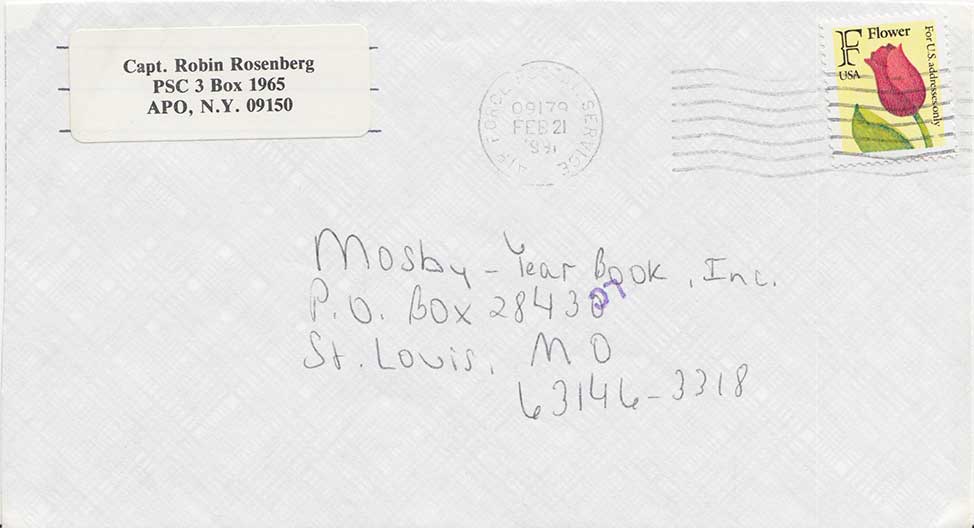 Capt. Robin Rosenberg
PSC 3 Box 1965
APO, N.Y. 09150
SERVICE
09179
FEB 21
F
Flower
USA
For U.S. addresses only
Mosby - Year Book, Inc.
P.O. Box 28430
St. Louis, MO
63146-3318